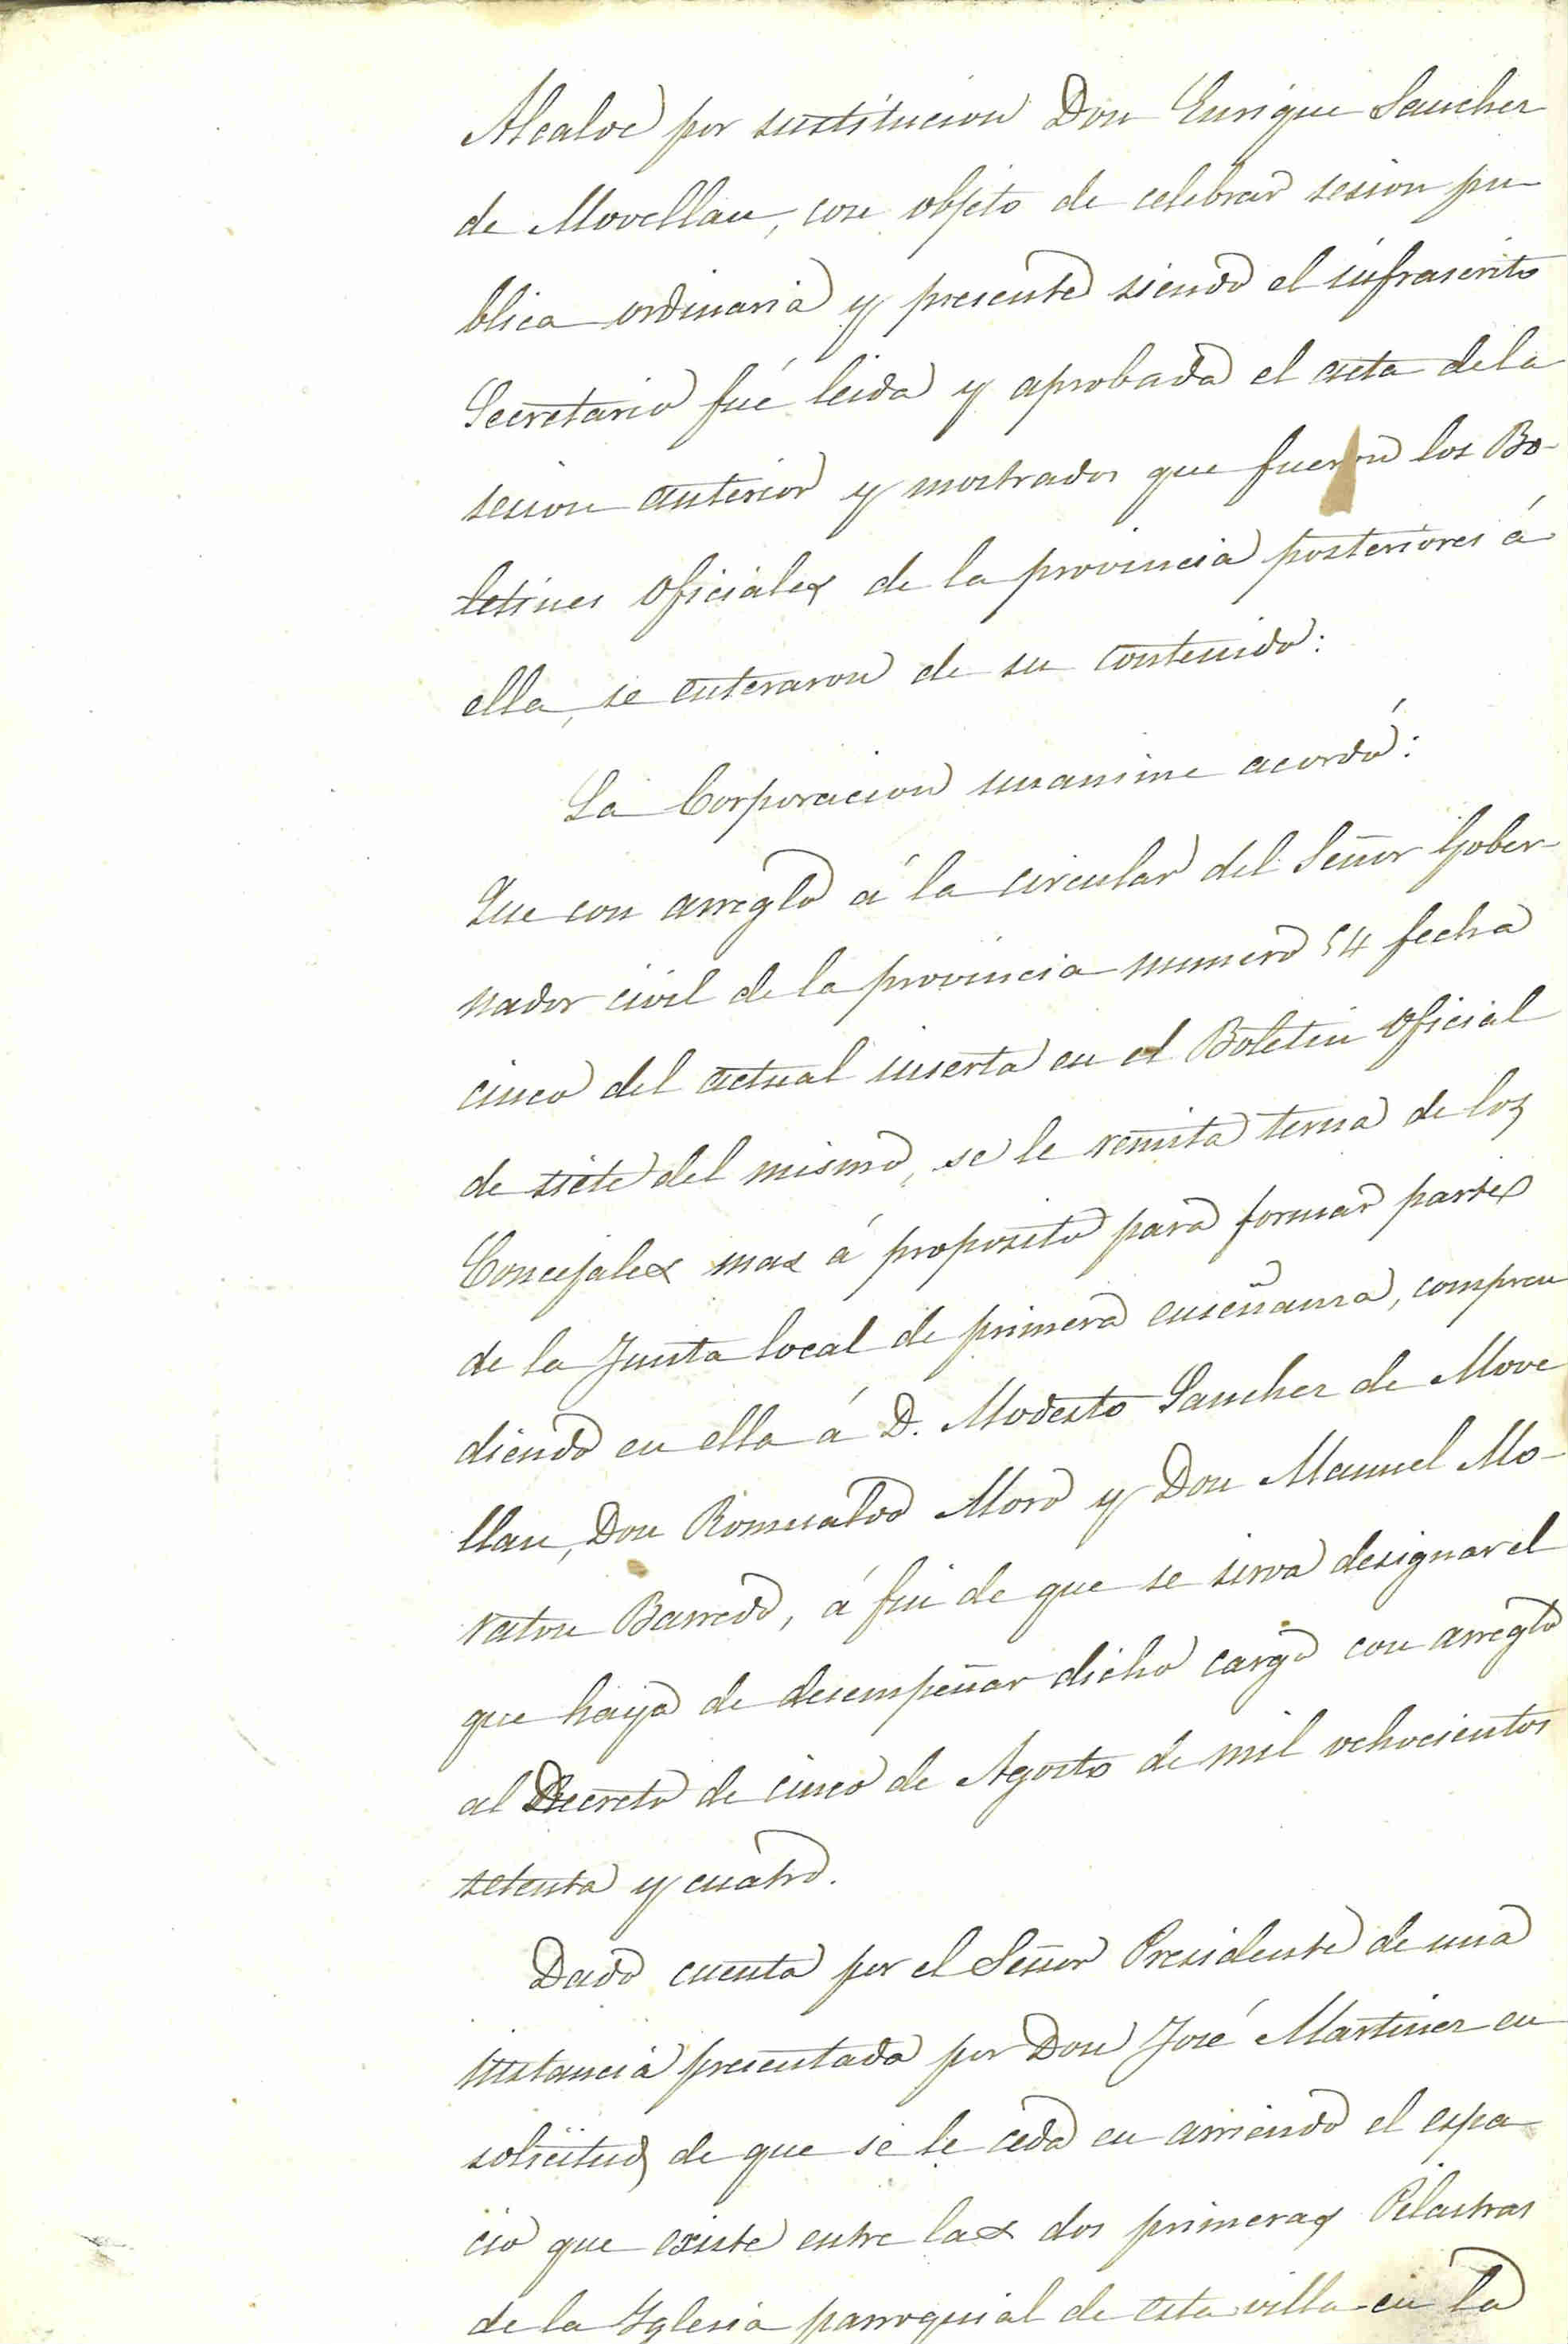 Alcalde por sustitucion Don Enrique Sanchez
de Movellan, con objeto de celebrar sesion pu-
blica ordinaria y presente siendo el infrascrito
Secretario fué leida y aprobada el acta de la
sesion anterior y mostrados que fueron los Bo-
letines oficiales de la provincia posteriores á
ella, se enteraron de su contenido:
La Corporacion unanime acordó:
Que con arreglo á la circular del Señor Gober-
nador civil de la provincia numero 54 fecha
cinco del actual inserta en el Boletin oficial
de siete del mismo, se le remita terna de los
Concejales mas á proposito para formar parte
de la Junta local de primera enseñanza, compren
diendo en ella á D. Modesto Sanchez de Move
llan, Don Romualdo Moro y Don Manuel Mo-
raton Barredo, á fin de que se sirva designar el
que haya de desempeñar dicho cargo con arreglo
al Decreto de cinco de Agosto de mil ochocientos
setenta y cuatro.
Dado cuenta por el Señor Presidente de una
instancia presentada por Don José Martinez en
solicitud de que se le ceda en arriendo el espa-
cio que existe entre las dos primeras Pilastras
de la Iglesia parroquial de esta villa en la